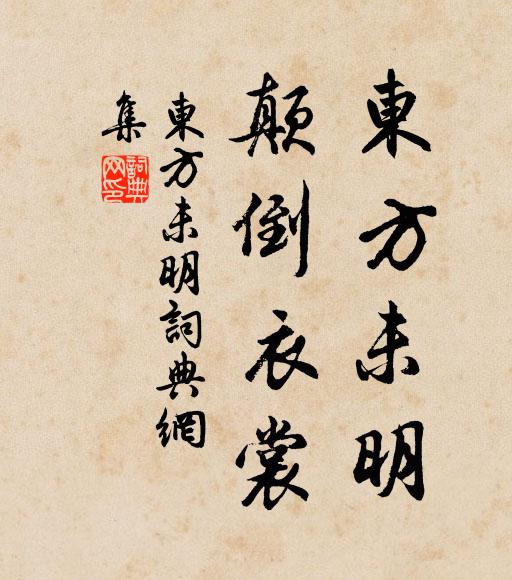 東方未明
顛倒衣裳
東方未明詞典網
集
詞典
网印